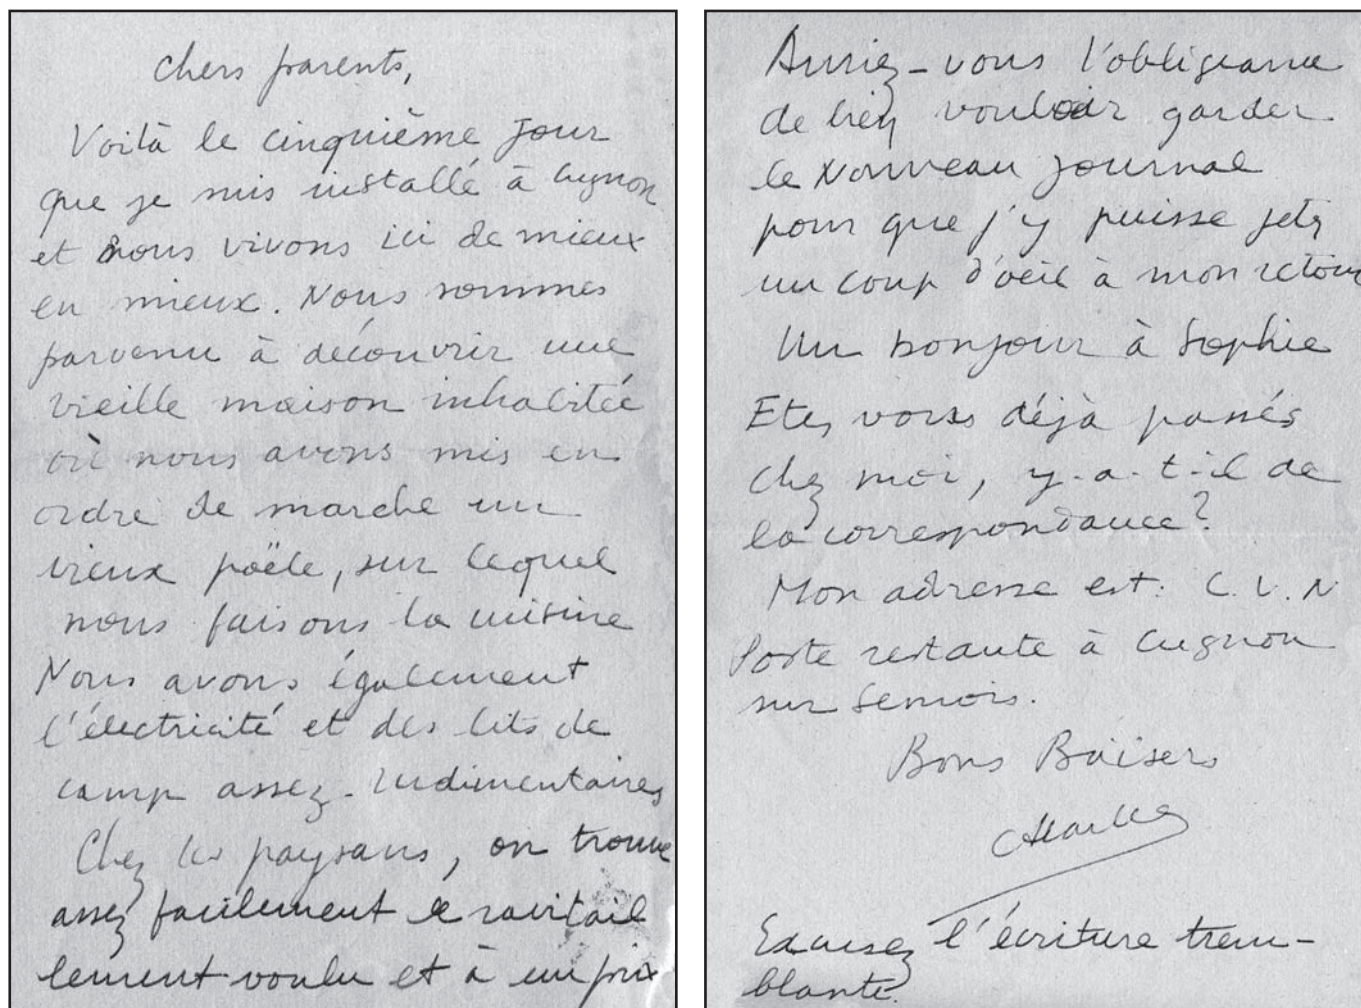 Chers parents,
Voilà le cinquième jour
que je suis installé à Cugnon
et nous vivons ici de mieux
en mieux. Nous sommes
parvenu à découvrir une
vieille maison inhabitée
où nous avons mis en
ordre de marche un
vieux poële, sur lequel
nous faisons la cuisine
Nous avons également
l'électricité et des lits de
camp assez rudimentaires
Chez les paysans, on trouve
assez facilement le ravitail
lement voulu et à un prix
Auriez-vous l'obligeance
de bien vouloir garder
le Nouveau Journal
pour que j'y puisse jeter
un coup d'oeil à mon retour
Un bonjour à Sophie
Etes vous déjà passés
chez moi, y-a-t-il de
la correspondance?
Mon adresse est: C.V.N
Poste restante à Cugnon
sur Semois.
Bons Baisers
Charles
Excusez l'écriture trem-
blante.